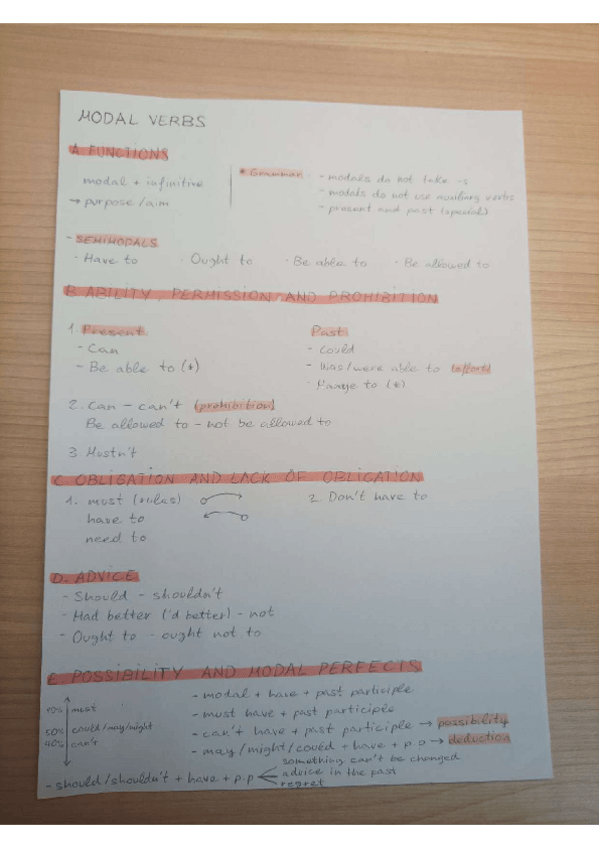 MODAL VERBS
A FUNCTIONS
modal + infinitive
→ purpose/aim
* Grammar - modals do not take -s
- modals do not use auxiliary verbs
- present and past (special)
- SEMIMODALS
· Have to · Ought to · Be able to · Be allowed to
B ABILITY PERMISSION AND PROHIBITION
1. Present
- Can
- Be able to (*)
Past
- Could
- Was/were able to (effort)
· Manage to (*)
2. Can - can't (prohibition)
Be allowed to - not be allowed to
3 Mustn't
C OBLIGATION AND LACK OF OBLIGATION
1. must (rules)
have to
need to
2. Don't have to
D. ADVICE
- Should - shouldn't
- Had better ('d better) - not
- Ought to - ought not to
E POSSIBILITY AND MODAL PERFECTS
90% must
50% could/may/might
40% can't
- modal + have + past participle
- must have + past participle
- can't + have + past participle → possibility
- may/might/could + have + p p → deduction
- should/shouldn't + have + p.p
something can't be changed
advice in the past
regret